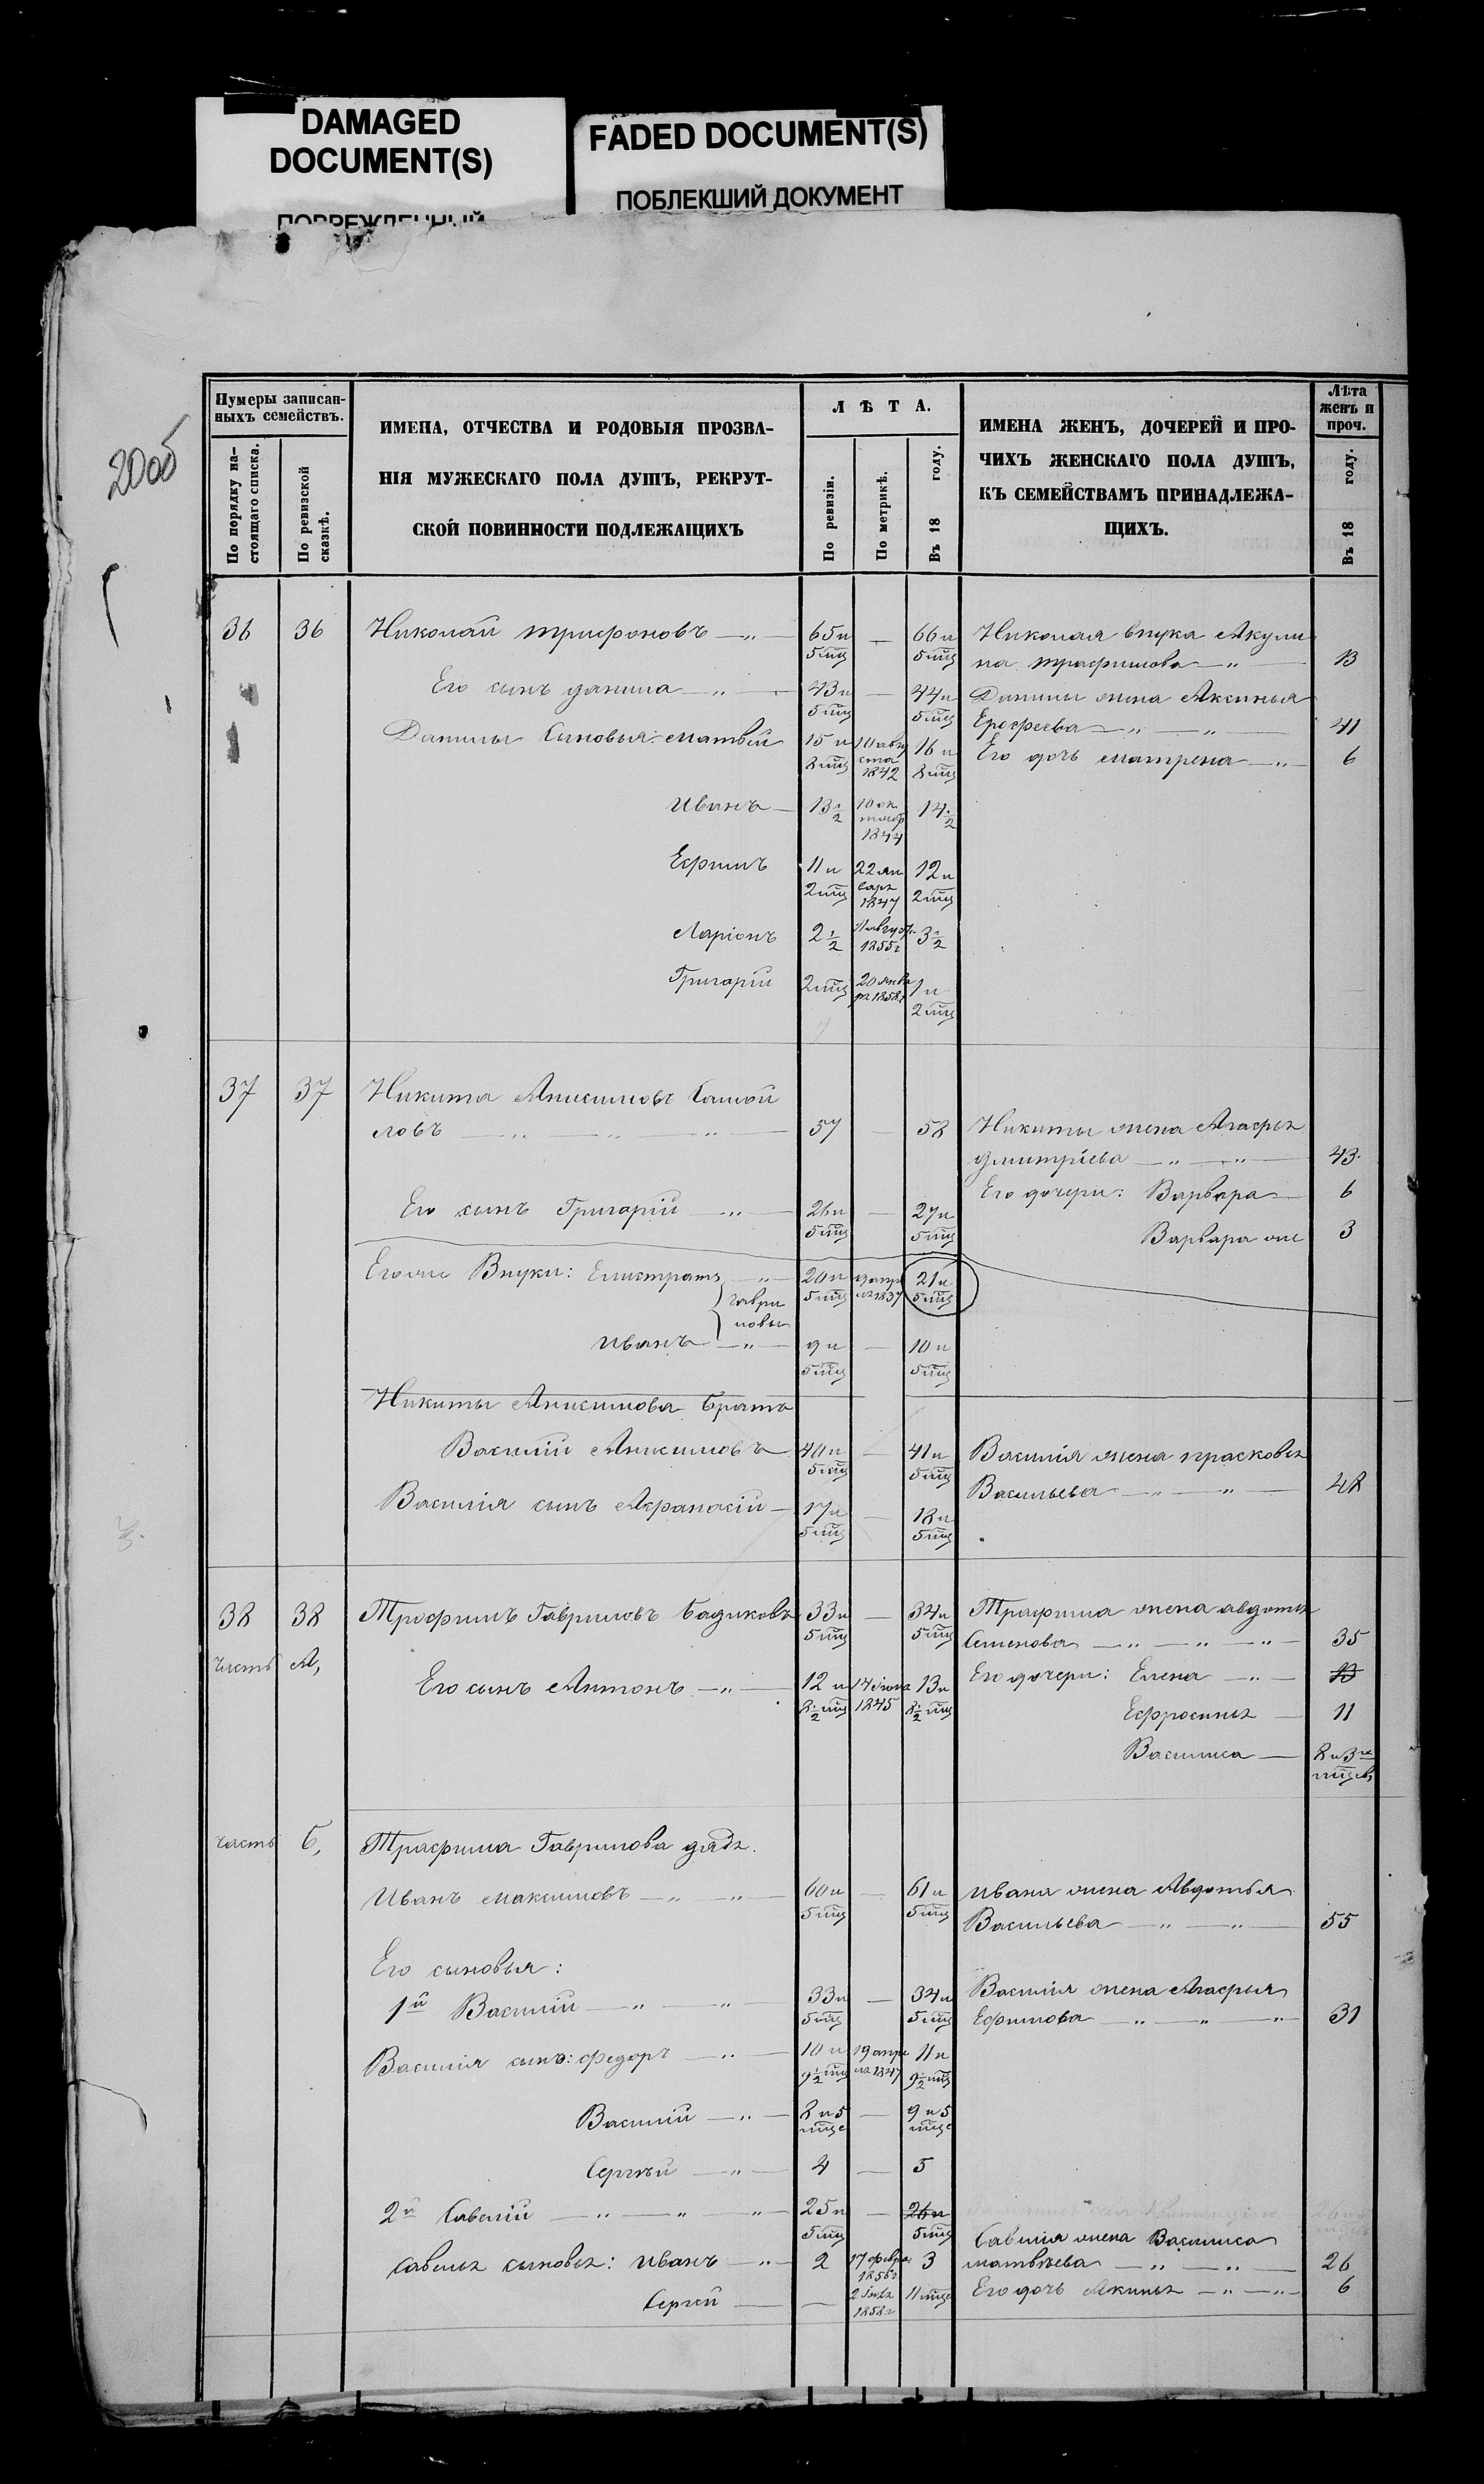 DAMAGED
DOCUMENT(S)
FADED DOCUMENT(S)
ПОБЛЕКШИЙ ДОКУМЕНТ
200б
Нумеры записан-
ныхъ семействъ.
По порядку на-
стоящаго списка.
По ревизской
сказкѣ.
ИМЕНА, ОТЧЕСТВА И РОДОВЫЯ ПРОЗВА-
НІЯ МУЖЕСКАГО ПОЛА ДУШЪ, РЕКРУТ-
СКОЙ ПОВИННОСТИ ПОДЛЕЖАЩИХЪ
ЛѢТА.
По ревизіи.
По метрикѣ.
Въ 18 году.
ИМЕНА ЖЕНЪ, ДОЧЕРЕЙ И ПРО-
ЧИХЪ ЖЕНСКАГО ПОЛА ДУШЪ,
КЪ СЕМЕЙСТВАМЪ ПРИНАДЛЕЖА-
ЩИХЪ.
Лѣта
женъ и
проч.
Въ 18 году.
36 36 Николай Трифоновъ — „ — 65 и 5 мц — 66 и 5 мц Николая внука Акули
на Трафимова — „ — 13
Его сынъ Данила — „ — 43 и 5 мц — 44 и 5 мц Данилы жена Аксинья
Ерофеева — „ — „ — 41
Данилы Сыновья: Матвѣй 15 и 8 мц 10 авгу ста 1842 16 и 8 мц Его дочь Матрена — „ — 6
Иванъ — 13 1/2 10 ок тябр 1844 14 1/2
Ефимъ 11 и 2 мц 22 ян варя 1847 12 и 2 мц
Ларіонъ 2 1/2 1855 г 3 1/2
Григорій 2 мц 20 янва ря 1858 г 1 и 2 мц
37 37 Никита Анисимовъ Самой
ловъ — „ — „ — „ — 57 — 58 Никиты жена Агафья
Дмитріева — „ — „ — 43
Его дочери: Варвара — 6
Его сынъ Григорій — „ — 26 и 5 мц — 27 и 5 мц
Варвара же 3
Его же Внуки: Елистратъ — „ — 20 и 5 мц 9 апре ля 1837 21 и 5 мц
Гаври
ловы
Иванъ — „ — 9 и 5 мц — 10 и 5 мц
Никиты Анисимова братъ
Василій Анисимовъ 40 и 5 мц — 41 и 5 мц Василія жена Прасковья
Васильева — „ — „ — 48
Василія сынъ Афанасій — 17 и 5 мц — 18 и 5 мц
38 38 Трофимъ Гавриловъ Бадиковъ 33 и 5 мц — 34 и 5 мц Трафима жена Авдотья
Семенова — „ — „ — „ — 35
часть А,
Его сынъ Антонъ — „ — 12 и 8 1/2 мц 1845 13 и 8 1/2 мц Его дочери: Елена — „ — 13
Ефросинья — 11
Василиса — 8 и 3 мцсв
часть б, Трафима Гаврилова дядя.
Иванъ Максимовъ — „ — „ — 60 и 5 мц — 61 и 5 мц Ивана жена Авдотья
Васильева — „ — „ — 55
Его сыновья:
1й Василій — „ — „ — 33 и 5 мц — 34 и 5 мц Василія жена Агафья
Ефимова — „ — „ — „ — 31
Василія сынъ: Федоръ — „ — 10 и 9 1/2 мц 19 апре ля 1847 11 и 9 1/2 мц
Василій — „ — 8 и 5 мцс — 9 и 5 мцс
Сергѣй — „ — 4 — 5
2й Савелій — „ — „ — „ — 25 и 5 мц — 26 и 5 мц
Савелія жена Василиса
Савелья сыновья: Иванъ — „ — 2 17 февра 1856 г 3 Матвѣева — „ — „ — 26
Сергѣй — — 1858 г 11 мцс Его дочь Акинья — „ — „ — 6